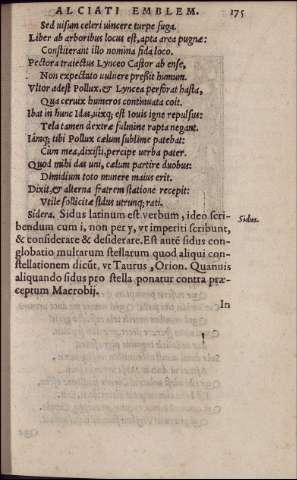 ALCIATI EMBLEM. 175
Sed visum celeri vincere turpe fuga.
Liber ab arboribus locus est, apta area pugnæ:
Constiterant illo nomina fida loco.
Pectora traiectus Lynceo Castor ab ense,
Non expectato vulnere pressit humum.
Vltor adest Pollux, & Lyncea perforat hasta,
Qua ceruix humeros continuata coit.
Ibat in hunc Idas, vixq; est Iouis igne repulsus:
Tela tamen dextræ fulmine rapta negant.
Iamq; tibi Pollux cælum sublime patebat:
Cum mea, dixisti, percipe verba pater.
Quod mihi das vni, cælum partire duobus:
Dimidium toto munere maius erit.
Dixit, & alterna fratrem statione recepit:
Vtile sollicitæ sidus vtrunq; rati.
Sidera. Sidus latinum est verbum, ideo scri-
Sidus.
bendum cum i, non per y, vt imperiti scribunt,
& considerate & desiderare. Est autē sidus con-
globatio multarum stellarum quod aliqui con-
stellationem dicūt, vt Taurus, Orion. Quamuis
aliquando sidus pro stella ponatur contra præ-
ceptum Macrobij.
In